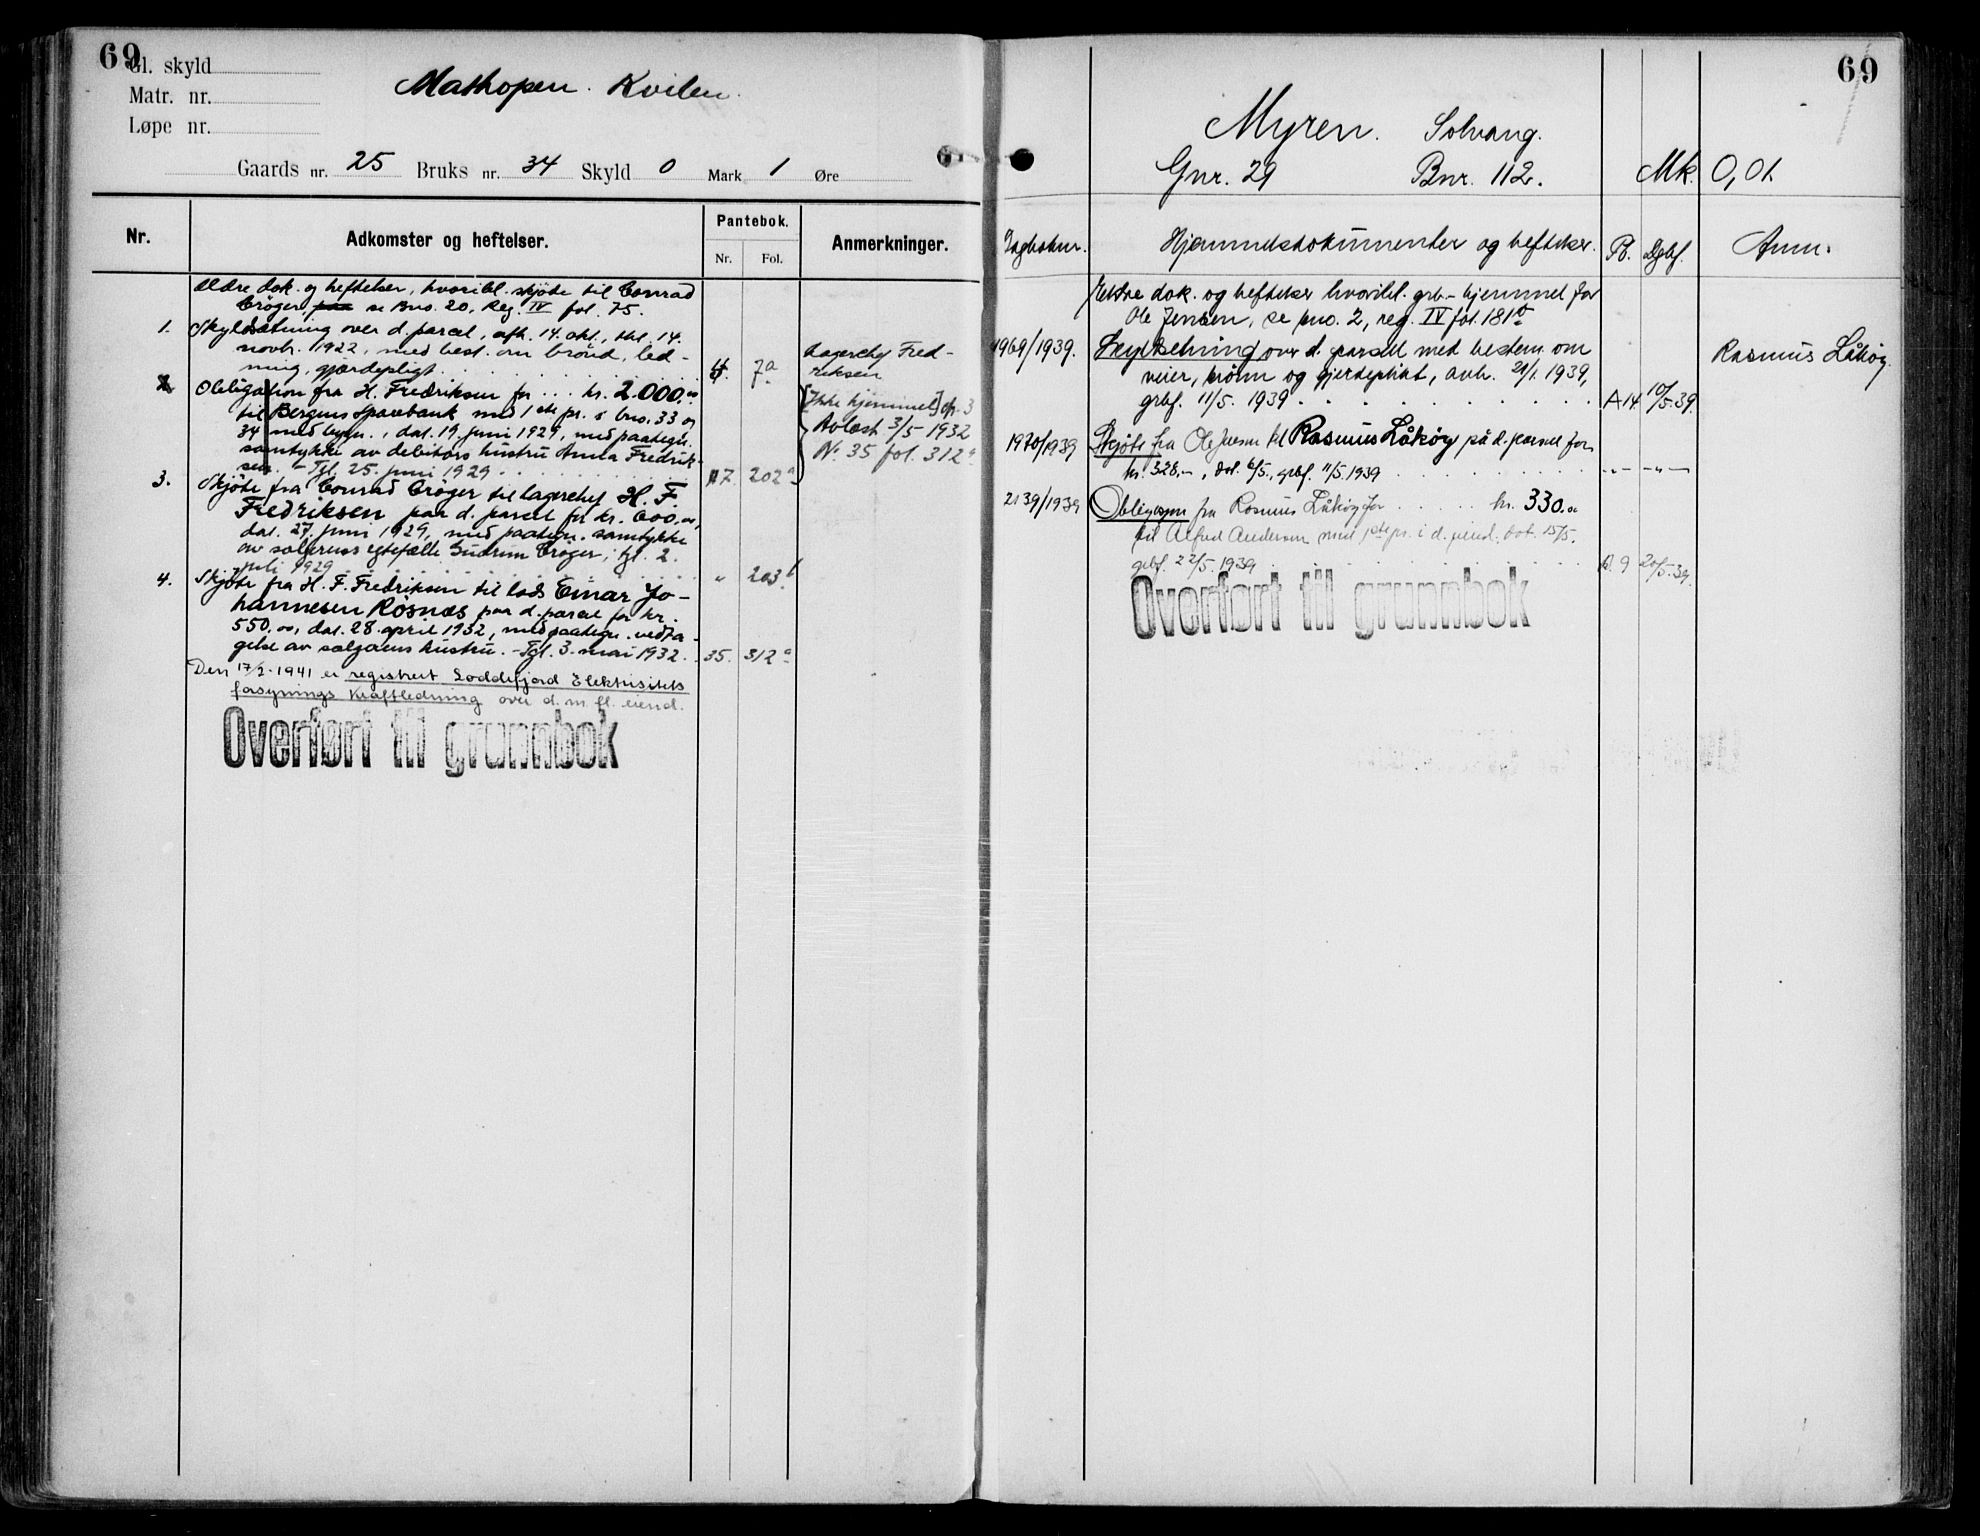 69
Gl. skyld
Mathopen. Kvilen.
Matr. nr.
Løpe nr.
Gaards nr. 25 Bruks nr. 34 Skyld 0 Mark 1 Øre
Nr. Adkomster og heftelser. Pantebok. Anmerkninger.
Nr. Fol.
Ældre dok. og heftelser, hvoribl. skjøte til Conrad
Crøger, paa se Bno. 20, Reg. IV fol. 75.
1. Skyldsætning over d. parcel, afh. 14. okt., tgl. 14.
novbr. 1922, med best. om brønd, led-
ning, gjærdepligt 4. 7a
Lagerchef Fred-
riksen
2. Obligation fra H. Fredriksen for ... kr. 2.000,00
til Bergens Sparebank med 1ste pr. i bno. 33 og
34 med bygn., dat. 19. juni 1929, med paategn.
samtykke av debitors hustru Anna Fredrik-
sen. - Tgl. 25. juni 1929 17. 202a
[Ikke hjemmel] cfr. 3
Avlæst 3/5 1932
N. 35 fol. 312a
3. Skjøte fra Conrad Crøger til lagerchef H. F.
Fredriksen paa d. parcel for kr. 600,00,
dat. 27. juni 1929, med paategn. samtykke
av sælgerens egtefælle Gudrun Crøger, tgl. 2.
juli 1929 " 203b
4. Skjøte fra H. F. Fredriksen til lods Einar Jo-
hannesen Rösnæs paa d. parcel for kr.
550,00, dat. 28. april 1932, med paategn. vedta-
gelse av sælgerens hustru. - Tgl. 3. mai 1932. 35. 312a
Den 17/2-1941 er registrert Loddefjord Elektrisitets
forsynings Kraftledning over d. m. fl. eiend.
Overført til grunnbok
69
Myren. Solvang.
Gnr. 29 Bnr. 112. Mk. 0,01
Dagboknr. Hjemmelsdokumenter og heftelser. Pb. Dgbf. Anm.
Eldre dok. og heftelser hvoribl. grb.-hjemmel for
Ole Jensen, se bno. 2, reg. IV fol. 181b
1969/1939. Skyldsetning over d. parsell med bestem. om
veier, brønn og gjerdeplikt, avh. 21/1. 1939,
grbf. 11/5. 1939 A 14 10/5.39.
Rasmus Låkøy.
1970/1939 Skjøte fra Ole Jensen til Rasmus Låkøy på d. parsel for
kr. 328,-, dat. 6/5., grbf. 11/5 1939 -"- -"-
2139/1939 Obligasjon fra Rasmus Låkøy for kr. 330,00
til Alfred Andersen med 1ste pr. i d. eiend. dat. 15/5.
grbf. 22/5. 1939 B. 9 20/5.39.
Overført til grunnbok